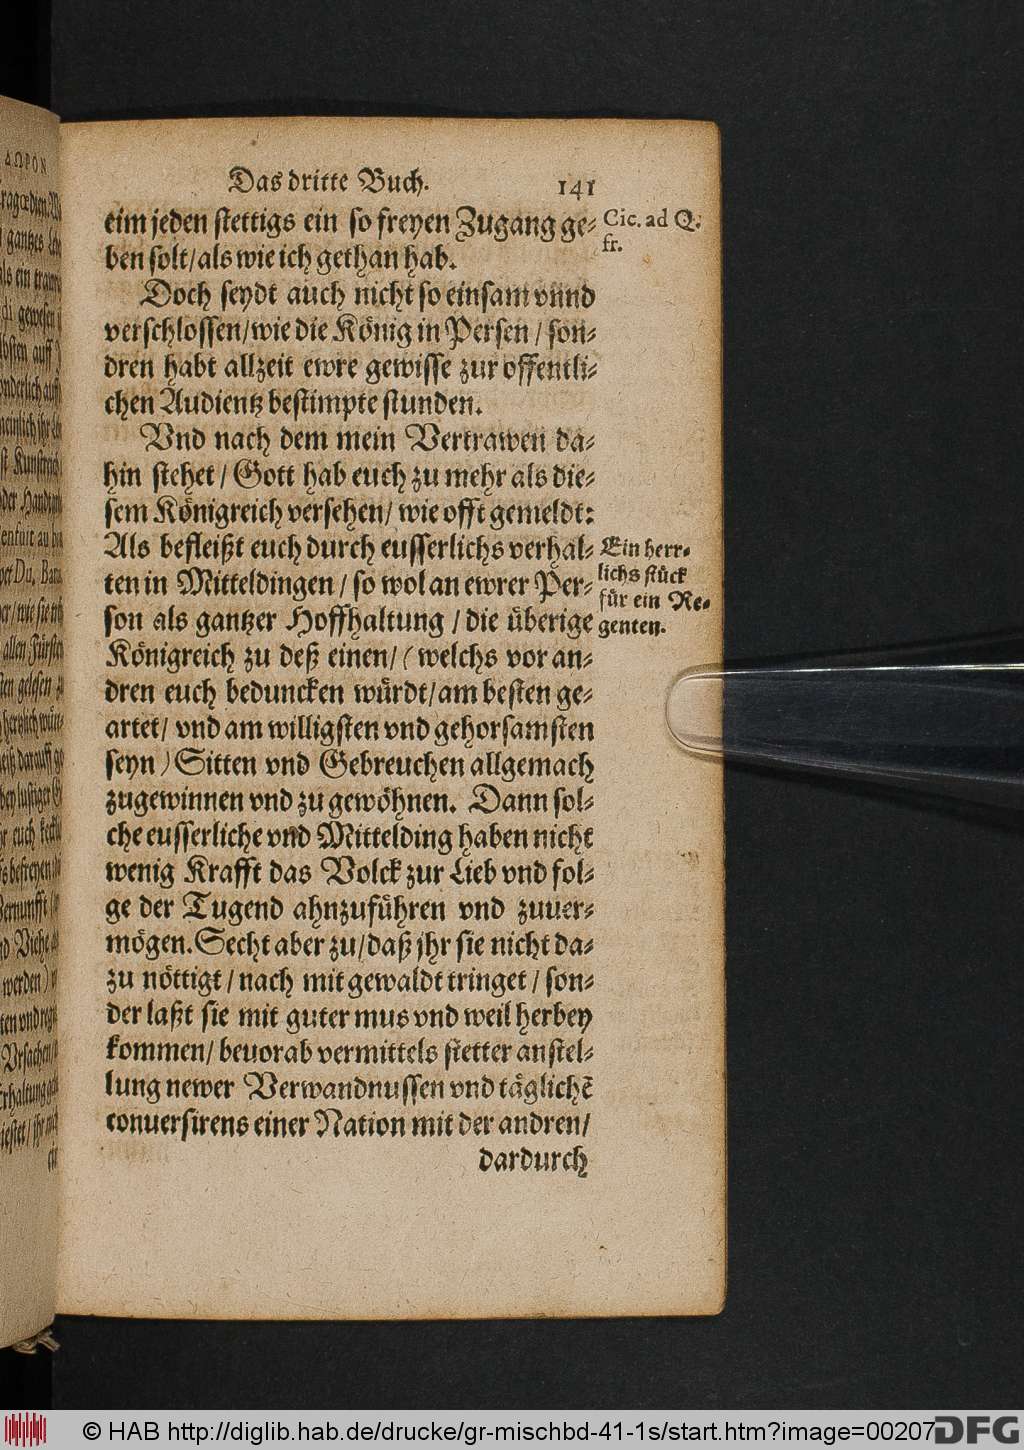 Das dritte Buch. 141
eim jeden stettigs ein so freyen Zugang ge-
ben solt/als wie ich gethan hab.
Doch seydt auch nicht so einsam vnnd
verschlossen/wie die König in Persen/son-
dren habt allzeit ewre gewisse zur offentli-
chen Audientz bestimpte stunden.
Vnd nach dem mein Vertrawen da-
hin stehet/Gott hab euch zu mehr als die-
sem Königreich versehen/wie offt gemeldt:
Als befleißt euch durch eusserlichs verhal-
ten in Mitteldingen/so wol an ewrer Per-
son als gantzer Hoffhaltung/die überige
Königreich zu deß einen/(welchs vor an-
dren euch beduncken würdt/am besten ge-
artet/vnd am willigsten vnd gehorsamsten
seyn) Sitten vnd Gebreuchen allgemach
zugewinnen vnd zu gewöhnen. Dann sol-
che eusserliche vnd Mittelding haben nicht
wenig Krafft das Volck zur Lieb vnd fol-
ge der Tugend ahnzuführen vnd zuuer-
mögen. Secht aber zu/daß jhr sie nicht da-
zu nöttigt/nach mit gewaldt tringet/son-
der laßt sie mit guter mus vnd weil herbey
kommen/beuorab vermittels stetter anstel-
lung newer Verwandnussen vnd täglichē
conuersirens einer Nation mit der andren/
dardurch
Cic. ad Q.
fr.
Ein herr-
lichs stück
für ein Re-
genten.
ΔΩΡΟΝ
© HAB http://diglib.hab.de/drucke/gr-mischbd-41-1s/start.htm?image=00207
DFG